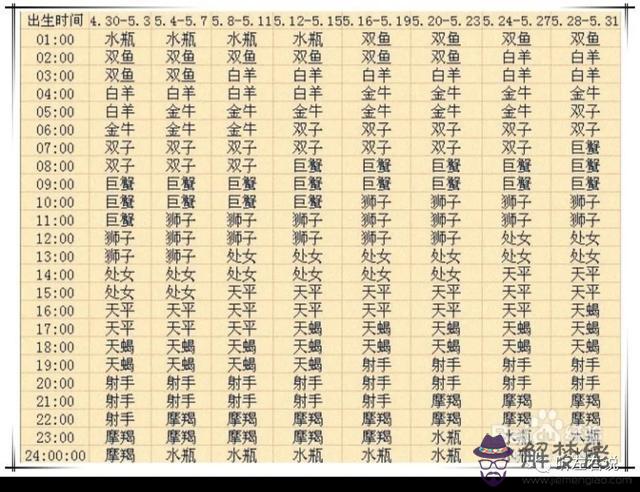 出生时间 4.30-5.3 5.4-5.7 5.8-5.115.12-5.155.16-5.195.20-5.235.24-5.275.28-5.31
01:00 水瓶 水瓶 水瓶 水瓶 双鱼 双鱼 双鱼 双鱼
02:00 双鱼 双鱼 双鱼 双鱼 双鱼 双鱼 白羊 白羊
03:00 双鱼 双鱼 白羊 白羊 白羊 白羊 白羊 白羊
04:00 白羊 白羊 白羊 白羊 金牛 金牛 金牛 金牛
05:00 白羊 金牛 金牛 金牛 金牛 金牛 金牛 双子
06:00 金牛 金牛 金牛 双子 双子 双子 双子 双子
07:00 双子 双子 双子 双子 双子 双子 双子 巨蟹
08:00 双子 双子 双子 巨蟹 巨蟹 巨蟹 巨蟹 巨蟹
09:00 巨蟹 巨蟹 巨蟹 巨蟹 巨蟹 巨蟹 巨蟹 巨蟹
10:00 巨蟹 巨蟹 巨蟹 巨蟹 狮子 狮子 狮子 狮子
11:00 巨蟹 狮子 狮子 狮子 狮子 狮子 狮子 狮子
12:00 狮子 狮子 狮子 狮子 狮子 狮子 处女 处女
13:00 狮子 狮子 处女 处女 处女 处女 处女 处女
14:00 处女 处女 处女 处女 处女 处女 天平 天平
15:00 处女 处女 天平 天平 天平 天平 天平 天平
16:00 天平 天平 天平 天平 天平 天平 天平 天蝎
17:00 天平 天平 天平 天蝎 天蝎 天蝎 天蝎 天蝎
18:00 天蝎 天蝎 天蝎 天蝎 天蝎 天蝎 天蝎 天蝎
19:00 天蝎 天蝎 天蝎 天蝎 射手 射手 射手 射手
20:00 射手 射手 射手 射手 射手 射手 射手 射手
21:00 射手 射手 射手 射手 射手 摩羯 摩羯 摩羯
22:00 射手 摩羯 摩羯 摩羯 摩羯 摩羯 摩羯 摩羯
23:00 摩羯 摩羯 摩羯 摩羯 摩羯 水瓶 水瓶
24:00:00 摩羯 水瓶 水瓶 水瓶 水瓶 水瓶
解梦佬
www.jiemengiao.com